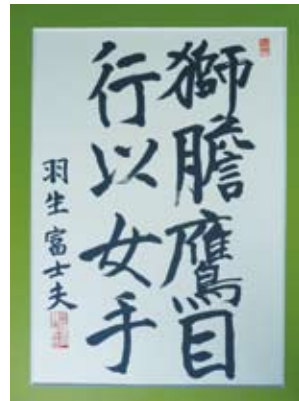 獅膽鷹目
行以女手
羽生富士夫